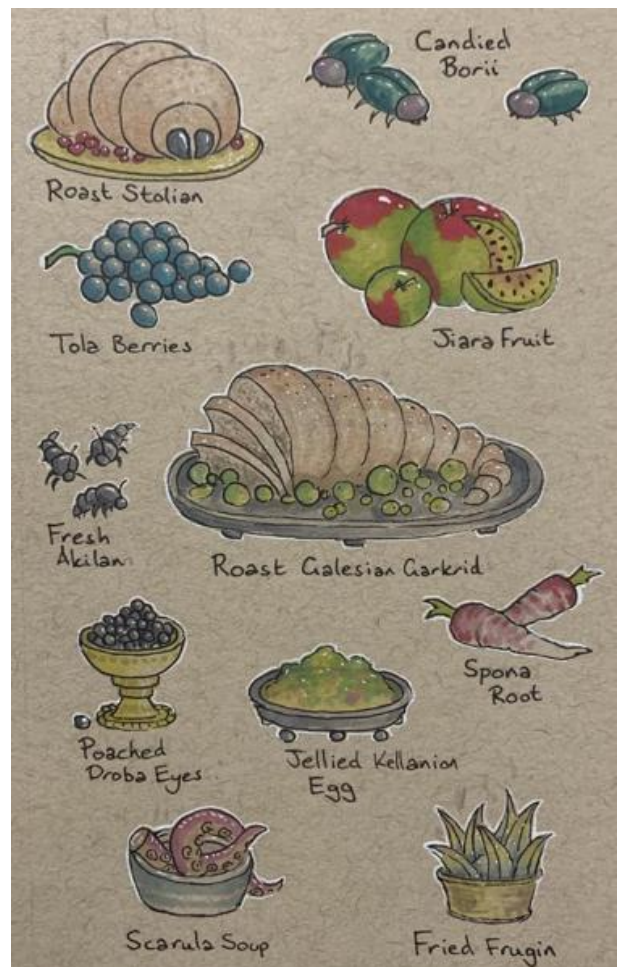 Candied
Borii
Roast Stolian
Tola Berries
Jiara Fruit
Fresh
Akilan
Roast Galesian Garkrid
Spona
Root
Poached
Droba Eyes
Jellied Kellanion
Egg
Scarula Soup
Fried Frugin